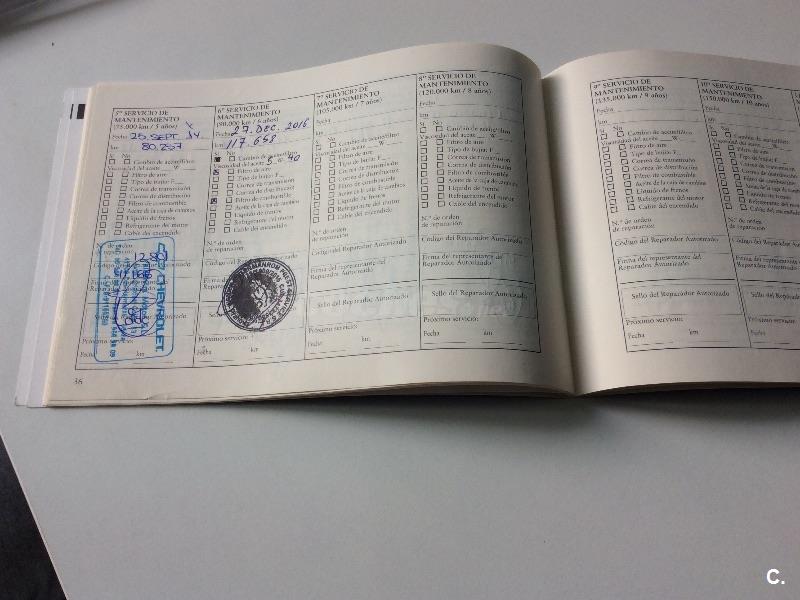 5º SERVICIO DE
MANTENIMIENTO
(75.000 km / 5 años)
Fecha 25 SEPT 14
km 80.257
Si No
Cambio de aceite/filtro
Viscosidad del aceite W
Filtro de aire
Tipo de bujía: F
Correa de transmisión
Correa de distribución
Filtro de combustible
Aceite de la caja de cambios
Líquido de frenos
Refrigerante del motor
Cable del encendido
de orden
de reparación
CHEVROLET
Próximo servicio:
Fecha km
6º SERVICIO DE
MANTENIMIENTO
(90.000 km / 6 años)
Fecha 27. DEC. 2016
km 117.658
Si No
Cambio de aceite/filtro
Viscosidad del aceite 5 W 40
Filtro de aire
Tipo de bujía: F
Correa de transmisión
Correa de distribución
Filtro de combustible
Aceite de la caja de cambios
Líquido de frenos
Refrigerante del motor
Cable del encendido
N.º de orden
de reparación
Código del
Firma del
Próximo servicio:
Fecha km
7º SERVICIO DE
MANTENIMIENTO
(105.000 km / 7 años)
Fecha
km
Si No
Cambio de aceite/filtro
Viscosidad del aceite W
Filtro de aire
Tipo de bujía: F
Correa de transmisión
Correa de distribución
Filtro de combustible
Aceite de la caja de cambios
Líquido de frenos
Refrigerante del motor
Cable del encendido
N.º de orden
de reparación
Código del Reparador Autorizado
Firma del representante del
Reparador Autorizado
Sello del Reparador Autorizado
Próximo servicio:
Fecha km
8º SERVICIO DE
MANTENIMIENTO
(120.000 km / 8 años)
Fecha
km
Si No
Cambio de aceite/filtro
Viscosidad del aceite W
Filtro de aire
Tipo de bujía: F
Correa de transmisión
Correa de distribución
Filtro de combustible
Aceite de la caja de cambios
Líquido de frenos
Refrigerante del motor
Cable del encendido
N.º de orden
de reparación
Código del Reparador Autorizado
Firma del representante del
Reparador Autorizado
Sello del Reparador Autorizado
Próximo servicio:
Fecha km
36
9º SERVICIO DE
MANTENIMIENTO
(135.000 km / 9 años)
Fecha
km
Si No
Cambio de aceite/filtro
Viscosidad del aceite W
Filtro de aire
Tipo de bujía: F
Correa de transmisión
Correa de distribución
Filtro de combustible
Aceite de la caja de cambios
Líquido de frenos
Refrigerante del motor
Cable del encendido
N.º de orden
de reparación
Código del Reparador Autorizado
Firma del representante del
Reparador Autorizado
Sello del Reparador Autorizado
Próximo servicio:
Fecha km
10º SERVICIO DE
MANTENIMIENTO
(150.000 km / 10 años)
Fecha
km
Si No
Cambio de aceite/filtro
Viscosidad del aceite
Filtro de aire
Tipo de bujía: F
Correa de transmisión
Correa de distribución
Filtro de combustible
Aceite de la caja de
Líquido de frenos
Refrigerante del motor
Cable del encendido
N.º de orden
de reparación
Código del Reparador
Firma del representante
Reparador Autorizado
Sello del Reparador
Próximo servicio:
Fecha
C.